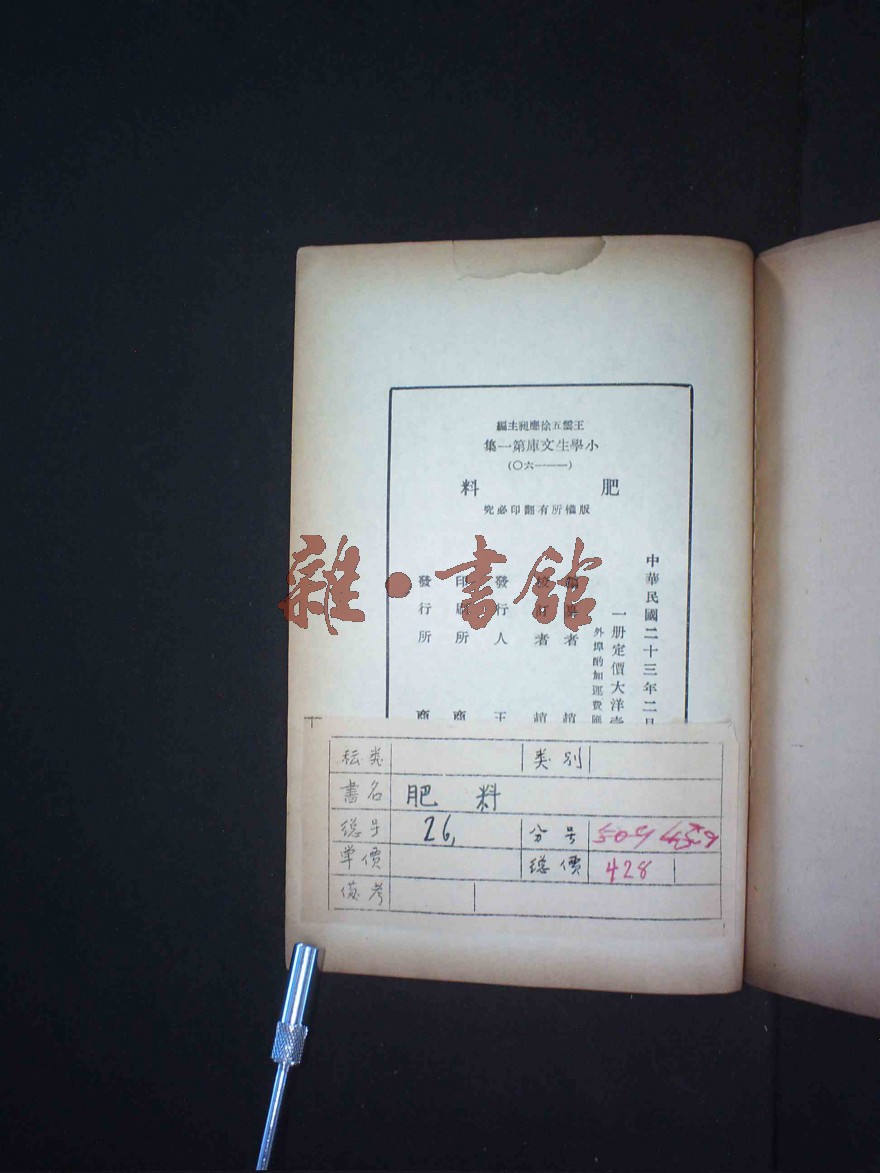 王雲五徐應昶主編
小學生文庫第一集
(一——六〇)
肥料
版權所有翻印必究
中華民國二十三年二月
一册定價大洋壹
外埠酌加運費匯
者 趙
者 趙
發行人 王
印刷所 商
發行所 商
雜·書館
耘类 类别
書名 肥料
總号 26, 分号
单價 總價 428
俻考